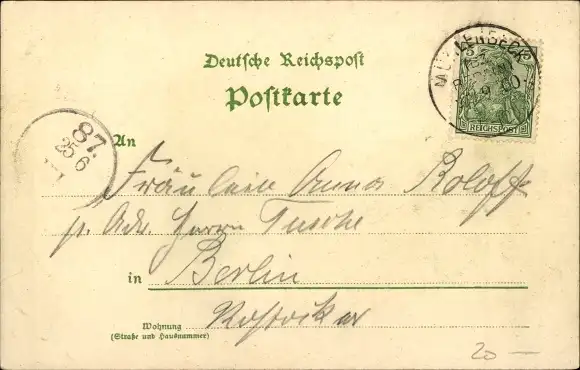 Deutsche Reichspost
Postkarte
REICHSPOST
87.
25 6
An
Fräulein Anna Roloff
p. Adr. Herrn Tusche
in Berlin
Wohnung
(Straße und Hausnummer)
Rostocker
20 —